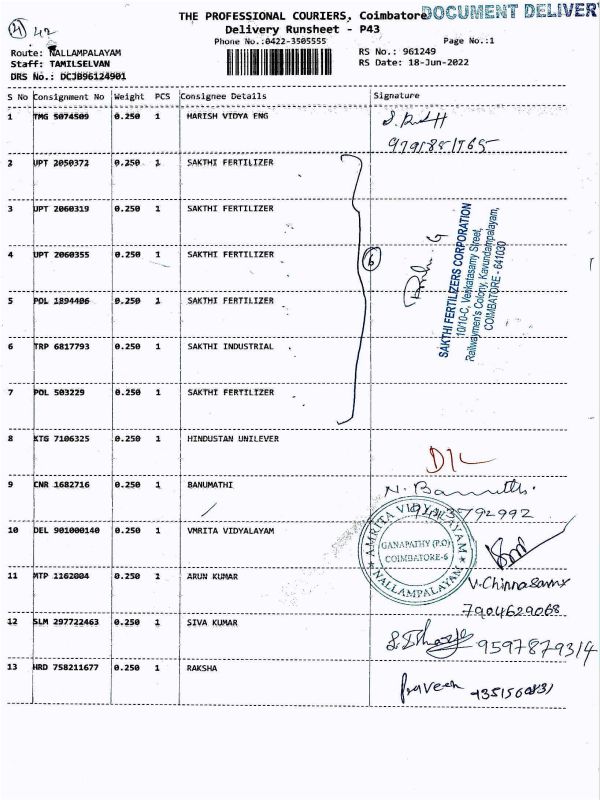 THE PROFESSIONAL COURIERS, Coimbatore
DOCUMENT DELIVERY
42
Delivery Runsheet - P43
Phone No.:0422-3505555
Page No.:1
Route: NALLAMPALAYAM
RS No.: 961249
Staff: TAMILSELVAN
RS Date: 18-Jun-2022
DRS No.: DCJB96124901
S No Consignment No Weight PCS Consignee Details Signature
1 TMG 5074509 0.250 1 HARISH VIDYA ENG
2 UPT 2050372 0.250 1 SAKTHI FERTILIZER
3 UPT 2060319 0.250 1 SAKTHI FERTILIZER
4 UPT 2060355 0.250 1 SAKTHI FERTILIZER
6
SAKTHI FERTILIZERS CORPORATION
10/10-C, Venkatasamy Street,
Railwaymen's Colony, Kavundampalayam,
COIMBATORE - 641030
5 POL 1894406 0.250 1 SAKTHI FERTILIZER
6 TRP 6817793 0.250 1 SAKTHI INDUSTRIAL
7 POL 503229 0.250 1 SAKTHI FERTILIZER
8 KTG 7106325 0.250 1 HINDUSTAN UNILEVER
D/L
9 CNR 1682716 0.250 1 BANUMATHI
N. Banumathi.
10 DEL 901000140 0.250 1 VMRITA VIDYALAYAM
AMRITA VIDYALAYAM
GANAPATHY (P.O)
COIMBATORE-6
NALLAMPALAYAM
11 MTP 1162004 0.250 1 ARUN KUMAR
V.Chinnasamy
7904629068
12 SLM 297722463 0.250 1 SIVA KUMAR
9597879314
13 HRD 758211677 0.250 1 RAKSHA
Praveen